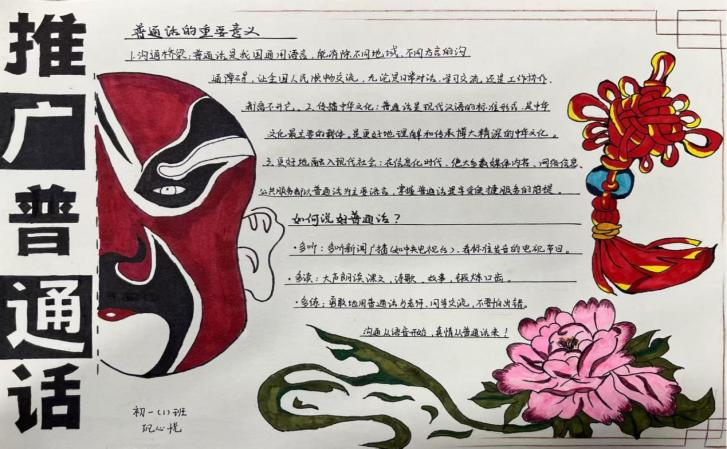 推广普通话
普通话的重要意义
1.沟通桥梁：普通话是我国通用语言，能消除不同地域、不同方言的沟
通障碍，让全国人民顺畅交流，无论是日常对话、学习交流，还是工作协作，
都离不开它。2、传播中华文化：普通话是现代汉语的标准形式，是中华
文化最主要的载体，是更好地理解和传承博大精深的中华文化。
3.更好地融入现代社会：在信息化时代，绝大多数媒体内容、网络信息、
公共服务都以普通话为主要语言，掌握普通话是享受便捷服务的前提。
如何说好普通话？
·多听：多听新闻广播（如中央电视台）、看标准发音的电视节目。
·多读：大声朗读课文，诗歌、故事，锻炼口齿。
·多练：勇敢地用普通话与老师、同学交流，不要怕出错。
沟通从语音开始，真情从普通话来！
初一（1）班
心悦